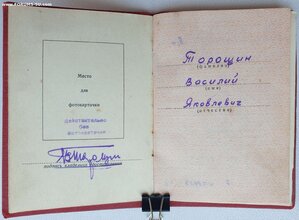 www.FORUMS-SU.com
Место
для
фотокарточки
действительно
без
фотокарточки
подпись владельца
Торощин
(фамилия)
Василий
(имя)
Яковлевич
(отчество)